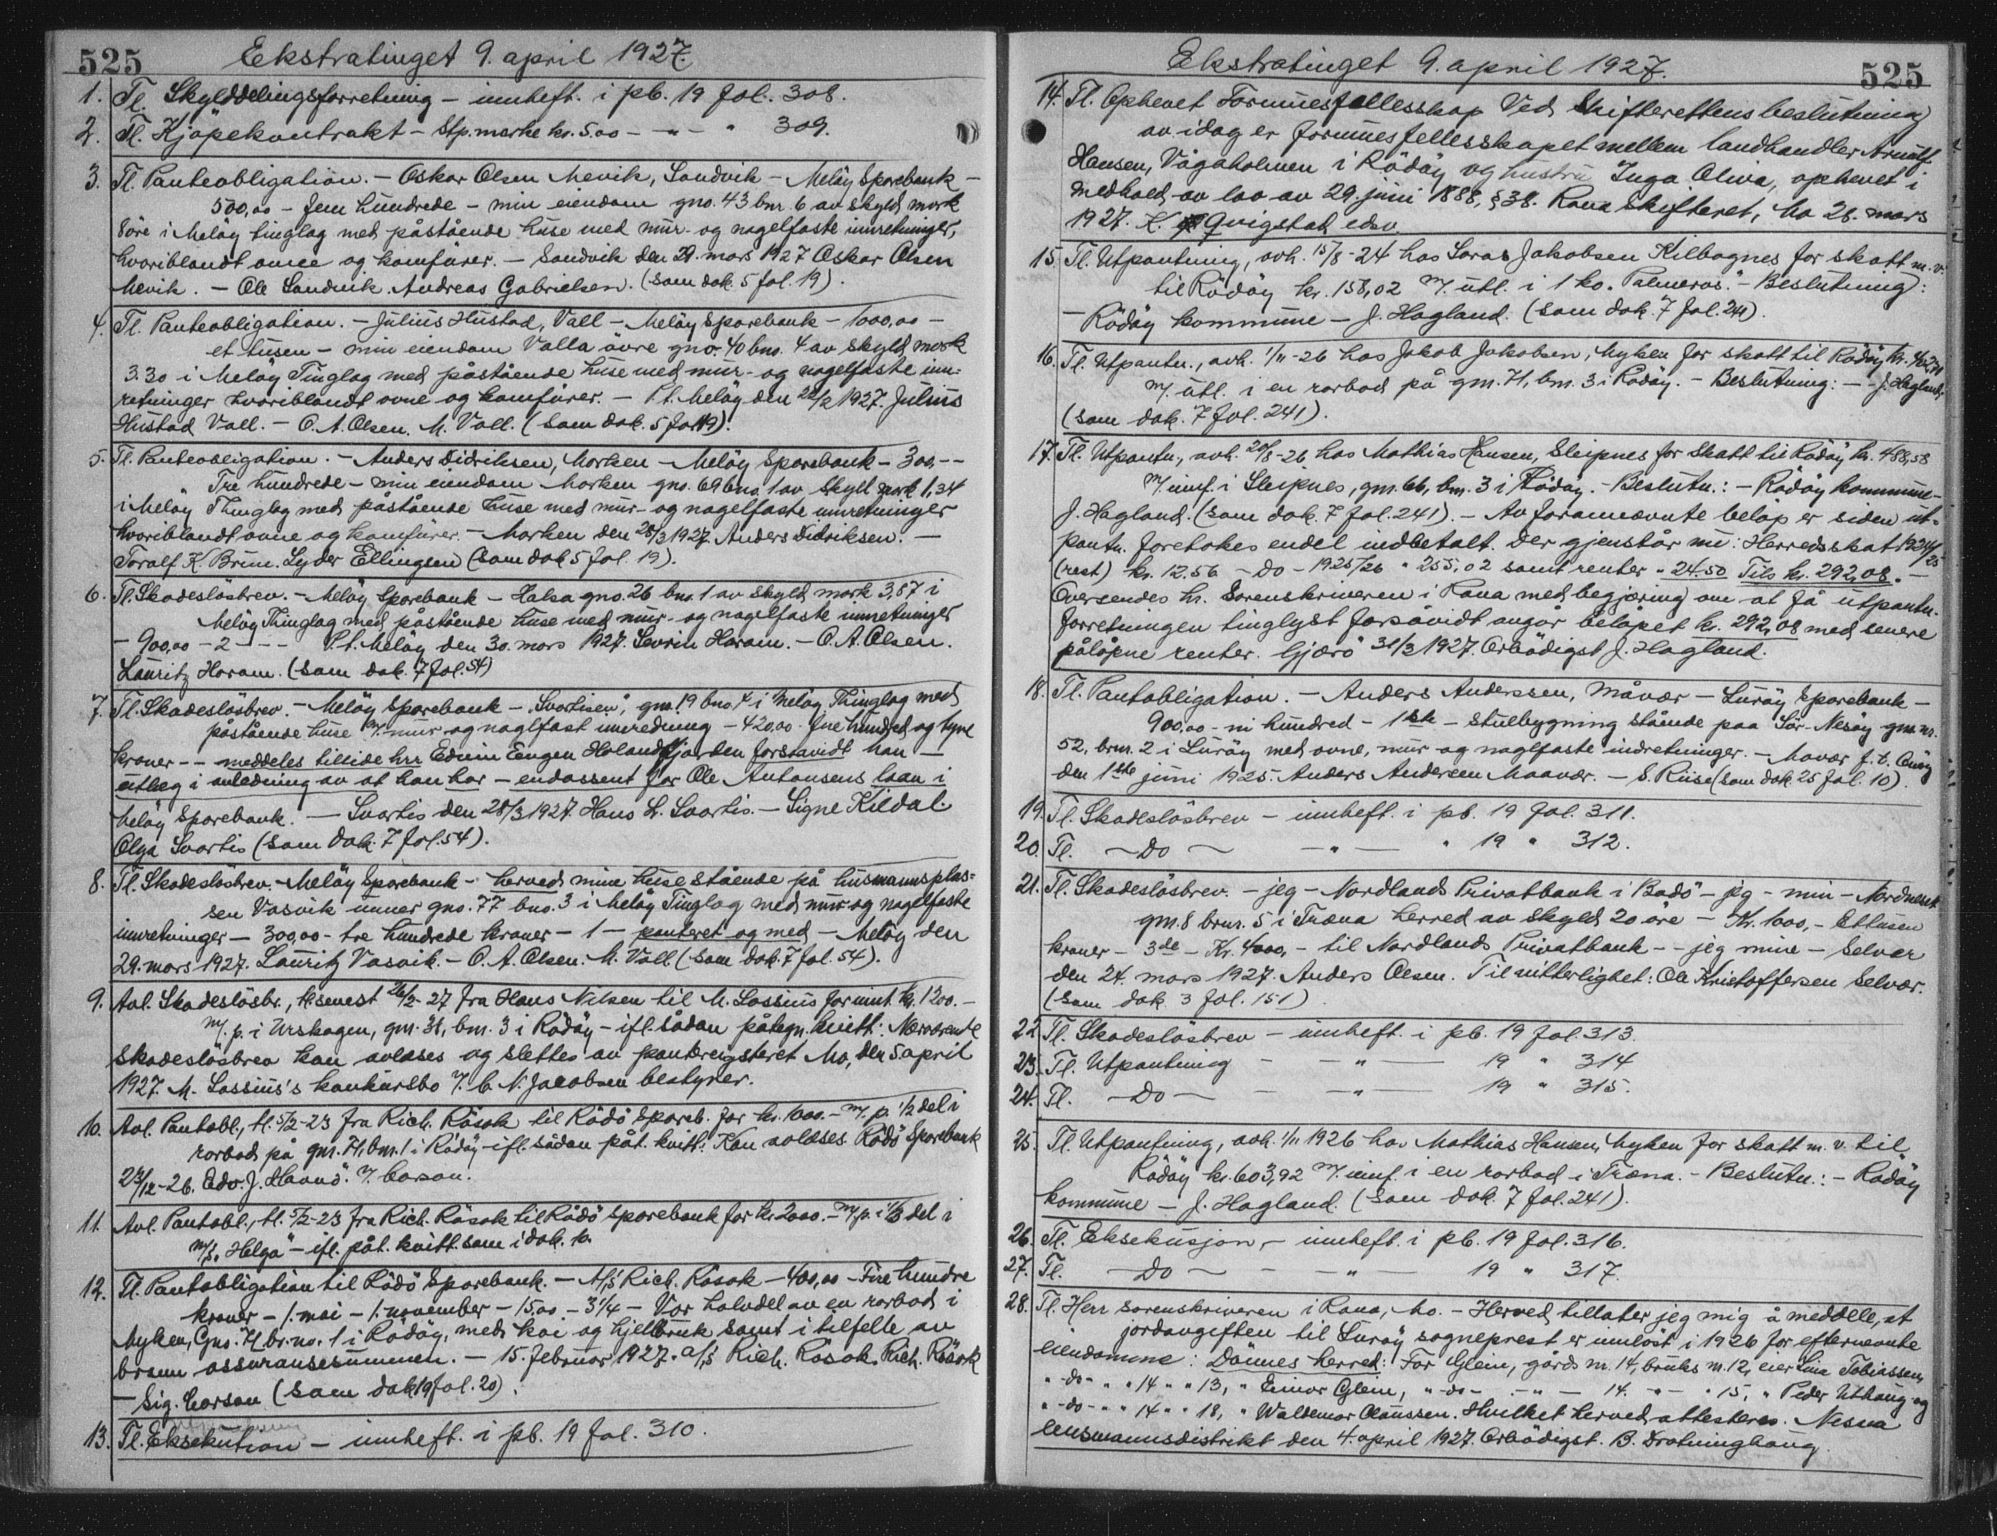 525 Ekstratinget 9. april 1927.
1. Tl. Skylddelingsforretning – innheft. i pb. 19 fol. 308.
2. Tl. Kjöpekontrakt – Stp. merke kr. 5.00 – – " – " 309.
3. Tl. Panteobligation. – Oskar Olsen Mevik, Sandvik – Melöy Sparebank –
500,00 – fem hundrede – min eiendom gno. 43 bnr 6 av skyld mark
öre i Melöy tinglag med påstående huse med mur- og nagelfaste innretninger,
hvoriblandt ovne og komfürer. – Sandvik den 29. mars 1927 Oskar Olsen
Mevik. – Ole Sandvik. Andreas Gabrielsen. (Som dok. 5 fol. 19).
4. Tl. Panteobligation. – Julius Hustad, Vall – Melöy Sparebank – 1000,00 –
et tusen – min eiendom Valla övre gno. 40 bno. 4 av skyld mark
3.30 i Melöy Tinglag med påstående huse med mur- og nagelfaste inn-
retninger hvoriblandt ovne og komfürer. – P.t. Melöy den 22/2 1927. Julius
Hustad Vall. – O. A. Olsen. M. Vall. (Som dok. 5 fol. 19).
5. Tl. Panteobligation. – Anders Didriksen, Marken – Melöy Sparebank – 300, – –
Tre hundrede – min eiendom Marken gno. 69 bno. 1 av Skyld mark 1,34
i Melöy Thinglag med påstående huse med mur- og nagelfaste innretninger
hvoriblandt ovne og komfürer. – Marken den 28/3 1927. Anders Didriksen. –
Toralf K. Brun. Lyder Ellingsen (Som dok 5 fol. 19).
6. Tl. Skadeslösbrev. – Melöy Sparebank – Halsa gno. 26 bno. 1 av skyld mark 3,87 i
Melöy Thinglag med påstående huse med mur- og nagelfaste innretninger
– 900,00 – 2 – – – P.t. Melöy den 30. mars 1927. Sevrin Haram. – O. A. Olsen.
Lauritz Haram. (Som dok. 7 fol. 54)
7. Tl. Skadeslösbrev. – Melöy Sparebank – "Svartisen", gno. 19 bno. 4 i Melöy Thinglag med
påstående huse m/. mur og naglfast innredning – 420,00 fire hundred og tyve
kroner – – meddeles tillide hrr Edvin Eugen Holand for den forstavidt han –
utlæg i anledning av at han har – endossent for Ole Antonsens laan i
Melöy Sparebank. – Svartis den 28/3 1927. Hans L. Svartis. – Signe Kildal.
Olga Svartis (Som Dok. 7 fol. 54).
8. Tl. Skadeslösbrev. – Melöy Sparebank – herved mine huse stående på husmannsplas-
sen Vasvik unner gno. 77 bno. 3 i Melöy Tinglag med mur og nagelfaste
innretninger – 300,00 – tre hundrede kroner – 1 – panteret og med – Melöy den
29. mars 1927. Lauritz Vasvik. – O. A. Olsen. M. Vall (Som dok. 7 fol. 54).
9. Avl. Skadeslösbr., tl. senest 26/2 - 27 fra Hans Nilsen til M. Lossius for innt. kr. 1200. –
m/. p. i Urskagen, gnr. 31, bnr. 3 i Rödöy – ifl. sådan påtegn. kvitt: Nærværende
Skadeslösbrev kan avlæses og slettes av pantregisteret Mo, den 5 april
1927. M. Lossius's konkursbo v/. C. N. Jacobsen bestyrer.
10. Avl. Pantobl., tl. 5/2 - 23 fra Rich. Rösok til Rödö Spareb. for kr. 1000. – m/. p. 1/2 del i
rorbod på gnr. 71, bnr. 1 i Rödöy – ifl. sådan påt. kvitt: Kan avlæses. Rödö Sparebank
23/12 - 26. Edv. J. Haanö. v/. Carson.
11. Avl. Pantobl., tl. 5/2 - 23 fra Rich. Rösok til Rödö Sparebank for kr. 2000. – m/p. i 1/3 del i
m/s. "Helga" – ifl. påt. kvitt. som i dok. 10.
12. Tl. Pantobligation til Rödö Sparebank. – A/S Rich. Rösok – 400,00 – Fire hundre
kroner – 1. mai – 1. november – 15,00 – 3 1/4 – Vor halvdel av en rorbod i
Myken, Gno. 71 br. no. 1 i Rödöy, med kai og hjellbruk samt i tilfelle av
brann assuransesummen. – 15. februar 1927. A/S Rich. Rosok. Rich. Rösok
– Sig. Carson (Som dok 19 fol. 20).
13. Tl. Eksekution – innheft. i pb. 19 fol. 310.
Ekstratinget 9. april 1927. 525
14. Tl. Ophevet Formuesfellesskap Ved Skifterettens beslutning
av idag er formuesfellesskapet mellem landhandler Arnulf
Hansen, Vågaholmen i Rödöy og hustru Inga Oliva, ophevet i
medhold av lov av 29. juni 1888, § 38. Rana Skifteret, Mo 26. mars
1927. K. Qvigstad edsv.
15. Tl. Utpantning, avh. 15/8 - 24 hos Saras Jakobsen Kilbognes for skatt m. v.
til Rödöy kr. 158,02 m/. utl. i 1 ko. "Palmeros". – Beslutning:
– Rödöy kommune – J. Hagland. (Som dok. 7 fol. 241).
16. Tl. Utpantn., avh. 1/11 - 26 hos Jakob Jakobsen, Myken for skatt til Rödöy kr.
m/. utl. i en rorbod på gnr. 71, bnr. 3 i Rödöy. – Beslutning: – – J. Hagland.
(Som dok. 7 fol. 241).
17. Tl. Utpantn., avh. 20/8 - 26 hos Mathias Hansen, Sleipnes for skatt til Rödöy kr. 488,58
m/. innf. i Sleipnes, gnr. 66, bnr. 3 i Rödöy. – Beslutn.: – Rödöy kommune –
J. Hagland. (Som dok. 7 fol. 241). – Av forannævnte belöp er siden ut-
pantn. foretokes endel indbetalt. Der gjenstår nu: Herredsskat 1924/25
(rest) kr. 12.56 – Do – 1925/26 " 255,02 samt renter " 24.50 Tils kr. 292,08. –
Oversendes hr. Sorenskriveren i Rana med begjæring om at få utpantn.
forretningen tinglyst forsåvidt angår belöpet kr. 292,08 med senere
pålöpne renter. Gjærö 31/3 1927. Ærbödigst J. Hagland.
18. Tl. Pantobligation. – Anders Anderssen, Måvær – Luröy Sparebank –
900,00 – ni hundred – 1 stk – stuebygning stående paa Sör-Nesöy gnr. nr.
52, brnr. 2 i Luröy med ovne, mur og naglfaste indretninger. – Mavær f. t. Luröy
den 1ste juni 1925. Anders Andersen Maavær. – S. Riise (som dok 25 fol. 10).
19. Tl. Skadeslösbrev – innheft. i pb. 19 fol. 311.
20. Tl. – Do – – " – " 19 " 312.
21. Tl. Skadeslösbrev. – jeg – Nordlands Privatbank i Bodö – jeg – min – Nordneset
gnr. 8 brnr. 5 i Træna herred av skyld 20 öre – Kr. 1000, – Ettusen
kroner – 3de – Kr. 4000, – til Nordlands Privatbank – – jeg mine – Selvær
den 24. mars 1927. Anders Olsen. Til vitterlighet: Ole Kristoffersen Selvær.
(Som dok 3 fol. 151)
22. Tl. Skadeslösbrev – innheft. i pb. 19 fol. 313.
23. Tl. Utpantning – – " – 19 " 314
24. Tl. – Do – – – " – 19 " 315.
25. Tl. Utpantning, avh. 1/11 1926 hos Mathias Hansen, Myken for skatt m. v. til
Rödöy kr. 603,92 m/. innf. i en rorbod i Træna. – Beslutn.: – Rödöy
kommune – J. Hagland. (Som dok. 7 fol. 241).
26. Tl. Eksekusjon, – innheft. i pb. 19 fol. 316.
27. Tl. – Do – – " – 19 " 317.
28. Tl. Herr sorenskriveren i Rana, Mo. – Herved tillater jeg mig å meddele, at
jordavgiften til Luröy sogneprest er innlöst i 1926 for efternevnte
eiendomme: Dönnes herred: For Glein, gårds nr. 14, bruks nr. 12, eier Lina Tobiassen,
" – do – " " 14 " " 13, " Einar Glein, " – do – " – " – 14. " – " 15, " Peder Uthaug og
" – do – " " 14 " " 18, " Waldemar Claussen. Hvilket herved attesteres. Nesna
lensmannsdistrikt den 4. april 1927. Ærbödigst. B. Drotninghaug.